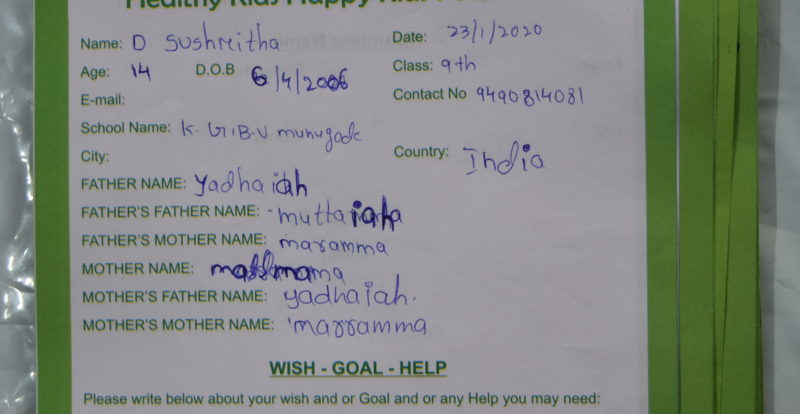 Healthy Kids Happy Kids
Name: D Sushmitha Date: 23/1/2020
Age: 14 D.O.B 6/4/2006 Class: 9th
E-mail: Contact No 9490814081
School Name: K. G.B.V munugode
City: Country: India
FATHER NAME: Yadhaiah
FATHER'S FATHER NAME: muttaiah
FATHER'S MOTHER NAME: maramma
MOTHER NAME:
MOTHER'S FATHER NAME: yadhaiah.
MOTHER'S MOTHER NAME: marramma
WISH - GOAL - HELP
Please write below about your wish and or Goal and or any Help you may need: